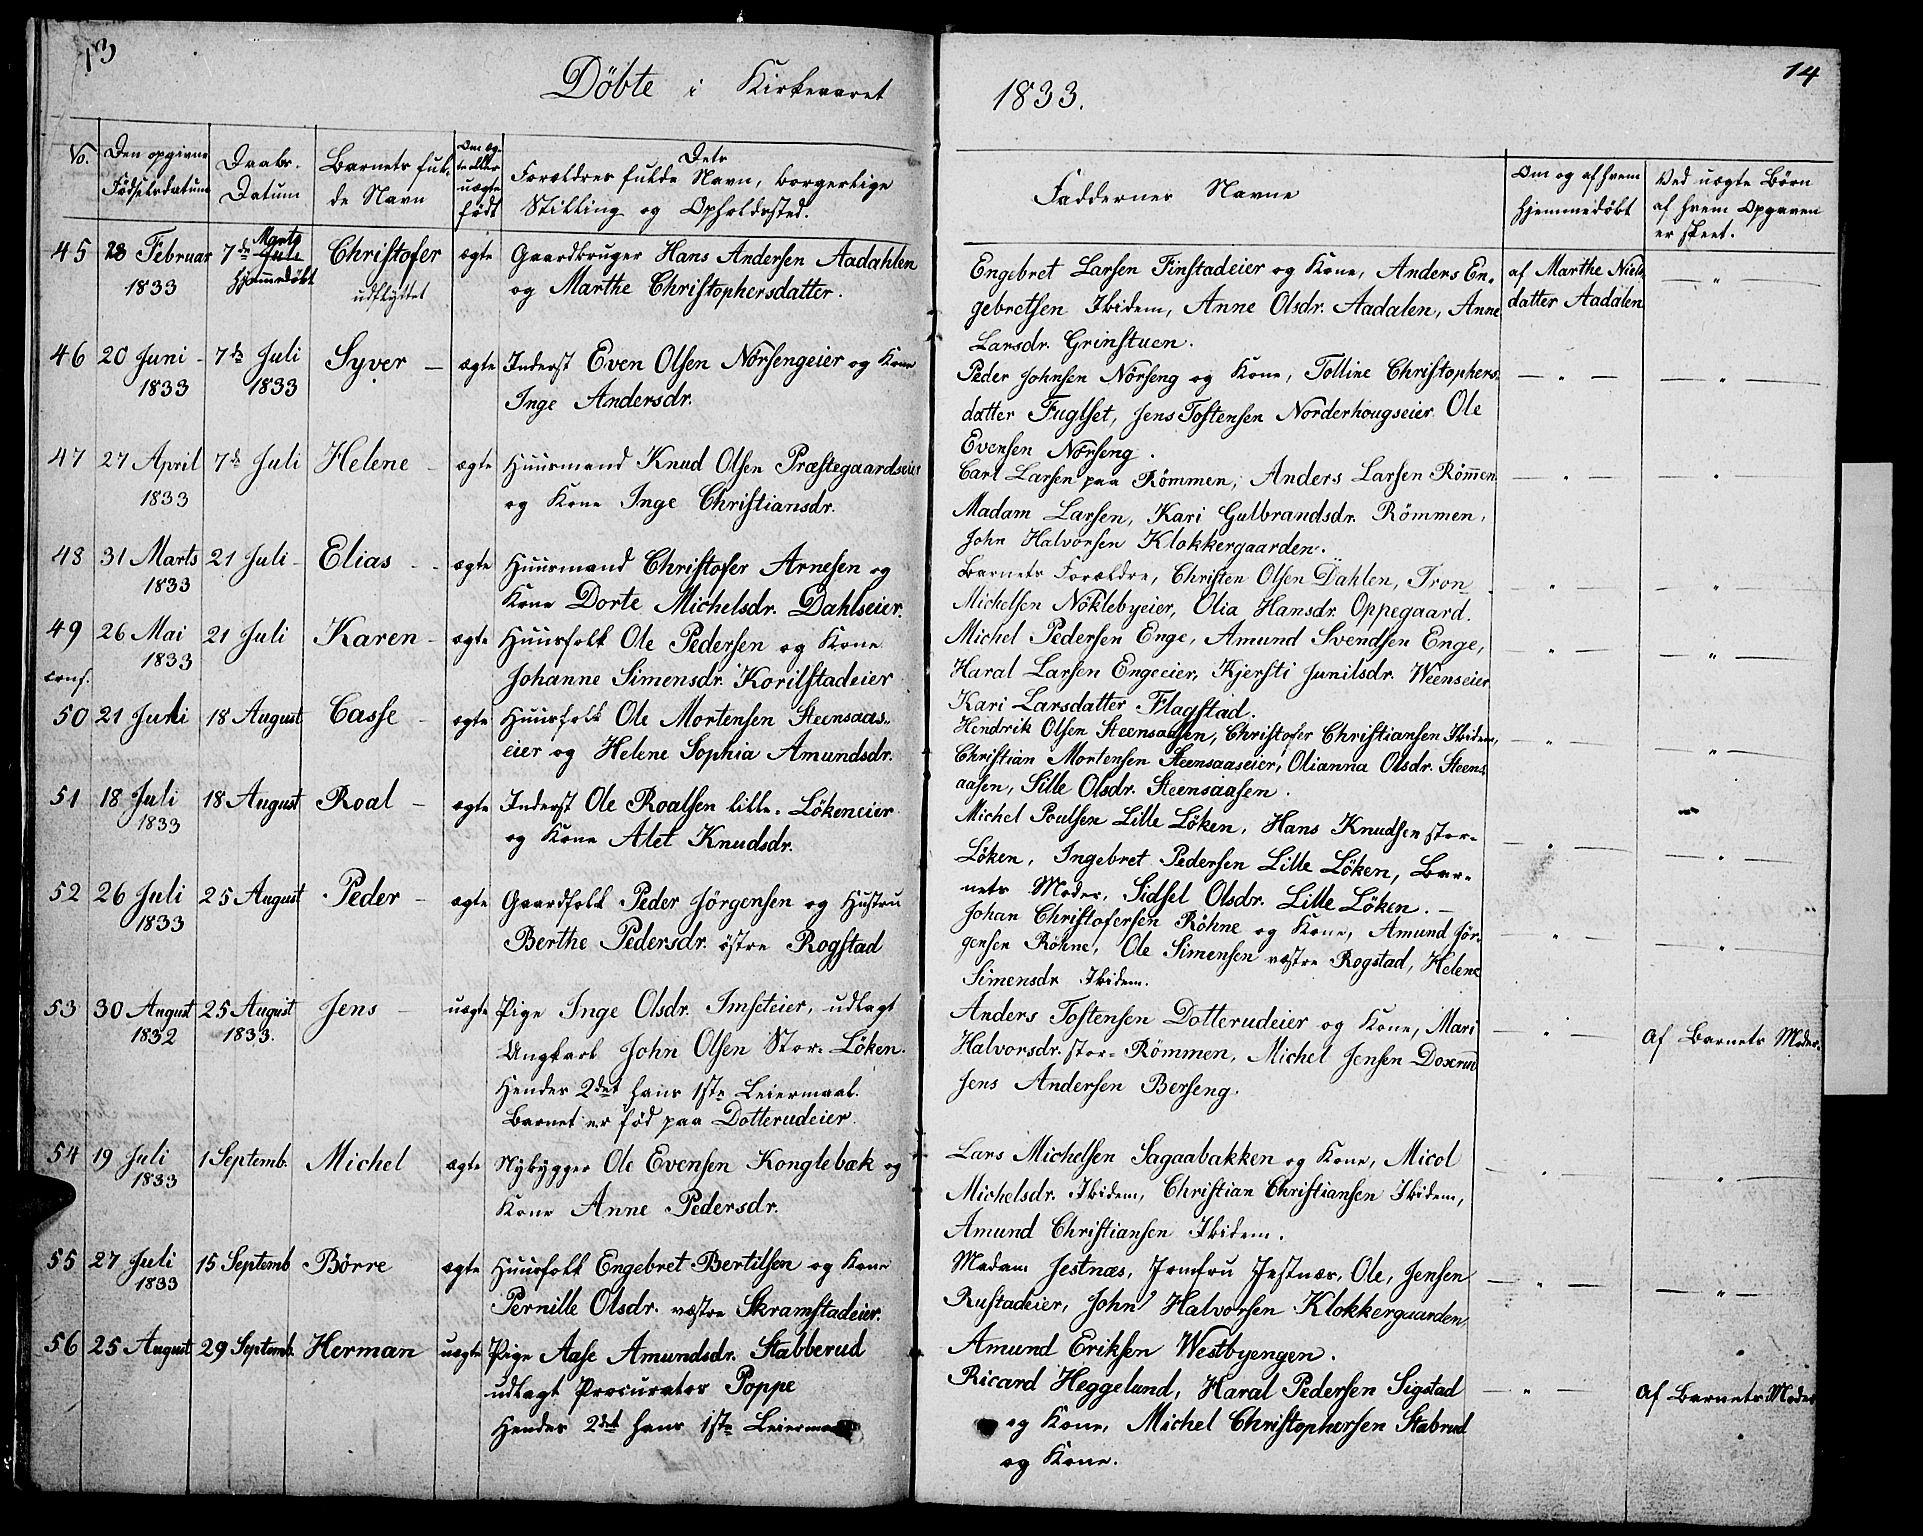 13
Döbte i Kirkeaaret
No.
Den opgivne
Födselsdatum
Daabs-
Datum
Barnets ful-
de Navn
Om æg-
te eller
uægte
födt
Dets
Forældres fulde Navn, borgerlige
Stilling og Opholdssted.
45 28 Februar 7de Marts Christofer ægte Gaardbruger Hans Andersen Aadahlen
1833 Hjemmedöbt udflyttet og Marthe Christophersdatter.
46 20 Juni - 7de Juli Syver - ægte Inderst Even Olsen Norsengeier og Kone
1833 1833 Inge Andersdr.
47 27 April 7de Juli Helene - ægte Huusmand Knud Olsen Præstegaardseier
1833 og Kone Inge Christiansdr.
48 31 Marts 21 Juli - Elias - ægte Huusmand Christofer Arnesen og
1833 Kone Dorte Michelsdr. Dahlseier.
49 26 Mai 21 Juli Karen - ægte Huusfolk Ole Pedersen og Kone
conf. 1833 Johanne Simensdr. Korilstadeier
50 21 Juli 18 August Casse - ægte Huusfolk Ole Mortensen Steensaas-
eier og Helene Sophia Amundsdr.
51 18 Juli 18 August Roal - ægte Inderst Ole Roalsen lille-Lökeneier
1833 og Kone Alet Knudsdr.
52 26 Juli 25 August Peder - ægte Gaardfolk Peder Jörgensen og Hustru
1833 Berthe Pedersdr. östre Rogstad
53 30 August 25 August Jens - uægte Pige Inge Olsdr. Imseteier, udlagt
1832 1833. Ungkarl John Olsen Stor-Löken.
Hendes 2det hans 1ste Leiermaal.
Barnet er föd paa Dotterudeier.
54 19 Juli 1 Septemb. Michel ægte Nybygger Ole Evensen Konglebæk og
1833 Kone Anne Pedersdr.
55 27 Juli 15 Septemb Börre ægte Huusfolk Engebret Bertilsen og Kone
1833 Pernille Olsdr. væstre Skramstadeier.
56 25 August 29 Septemb. Herman uægte Pige Aase Amundsdr. Stabberud
udlagt Procurator Poppe
Hendes 2det hans 1ste
14
1833.
Faddernes Navne
Om og af hvem
hjemmedöbt
Ved uægte Börn
af hvem Opgaven
er skeet.
Engebret Larsen Finstadeier og Kone, Anders En- af Marthe Niels
gebretsen Ibidem, Anne Olsdr. Aadalen, Anne datter Aadalen
Larsdr. Grinstuen.
Peder Johnsen Norseng og Kone, Tolline Christophers-
datter Fuglset, Jens Tostensen Norderhougseier Ole
Evensen Norseng.
Carl Larsen paa Römmen, Anders Larsen Römmen
Madam Larsen, Kari Gulbrandsdr. Römmen,
John Halvorsen Klokkergaarden.
Barnets Forældre, Christen Olsen Dahlen, Tron
Michelsen Nöklebyeier, Olia Hansdr. Oppegaard.
Michel Pedersen Enge, Amund Svendsen Enge,
Haral Larsen Engeeier, Kjersti Junilsdr. Weenseier
Kari Larsdatter Flagstad.
Hendrik Olsen Steensaasen, Christofer Christiansen Ibidem,
Christian Mortensen Steensaaseier, Olianna Olsdr. Steens
aasen, Sille Olsdr. Steensaasen.
Michel Poulsen Lille Löken, Hans Knudsen stor-
Löken, Ingebret Pedersen Lille Löken, Bar-
nets Moder, Sidsel Olsdr. Lille Löken.
Johan Christofersen Röhne og Kone, Amund Jör-
gensen Röhne, Ole Simensen væstre Rogstad, Helene
Simensdr Ibidem.
Anders Tostensen Dotterudeier og Kone, Mari
Halvorsdr. stor-Römmen, Michel Jensen Doxrud Af Barnets Moder.
Jens Andersen Berseng.
Lars Michelsen Sagaabakken og Kone, Micol
Michelsdr. Ibidem, Christian Christiansen Ibidem,
Amund Christiansen Ibidem.
Madam Jestnæs, Jomfru Jestnæs, Ole Jensen
Rustadeier, John Halvorsen Klokkergaarden
Amund Eriksen Westbyengen.
Ricard Heggelund, Haral Pedersen Sigstad Af Barnets Moder
og Kone, Michel Christophersen Stabrud
og Kone.